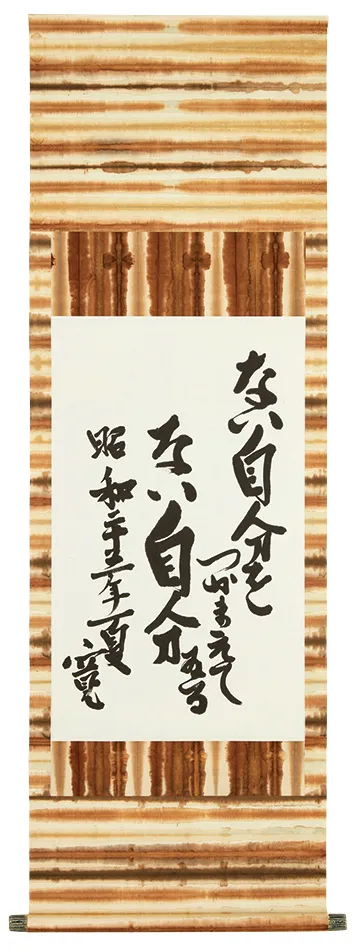 ない自分を
つかまえて
ゐる
ない自分
昭和二十三年夏
寛